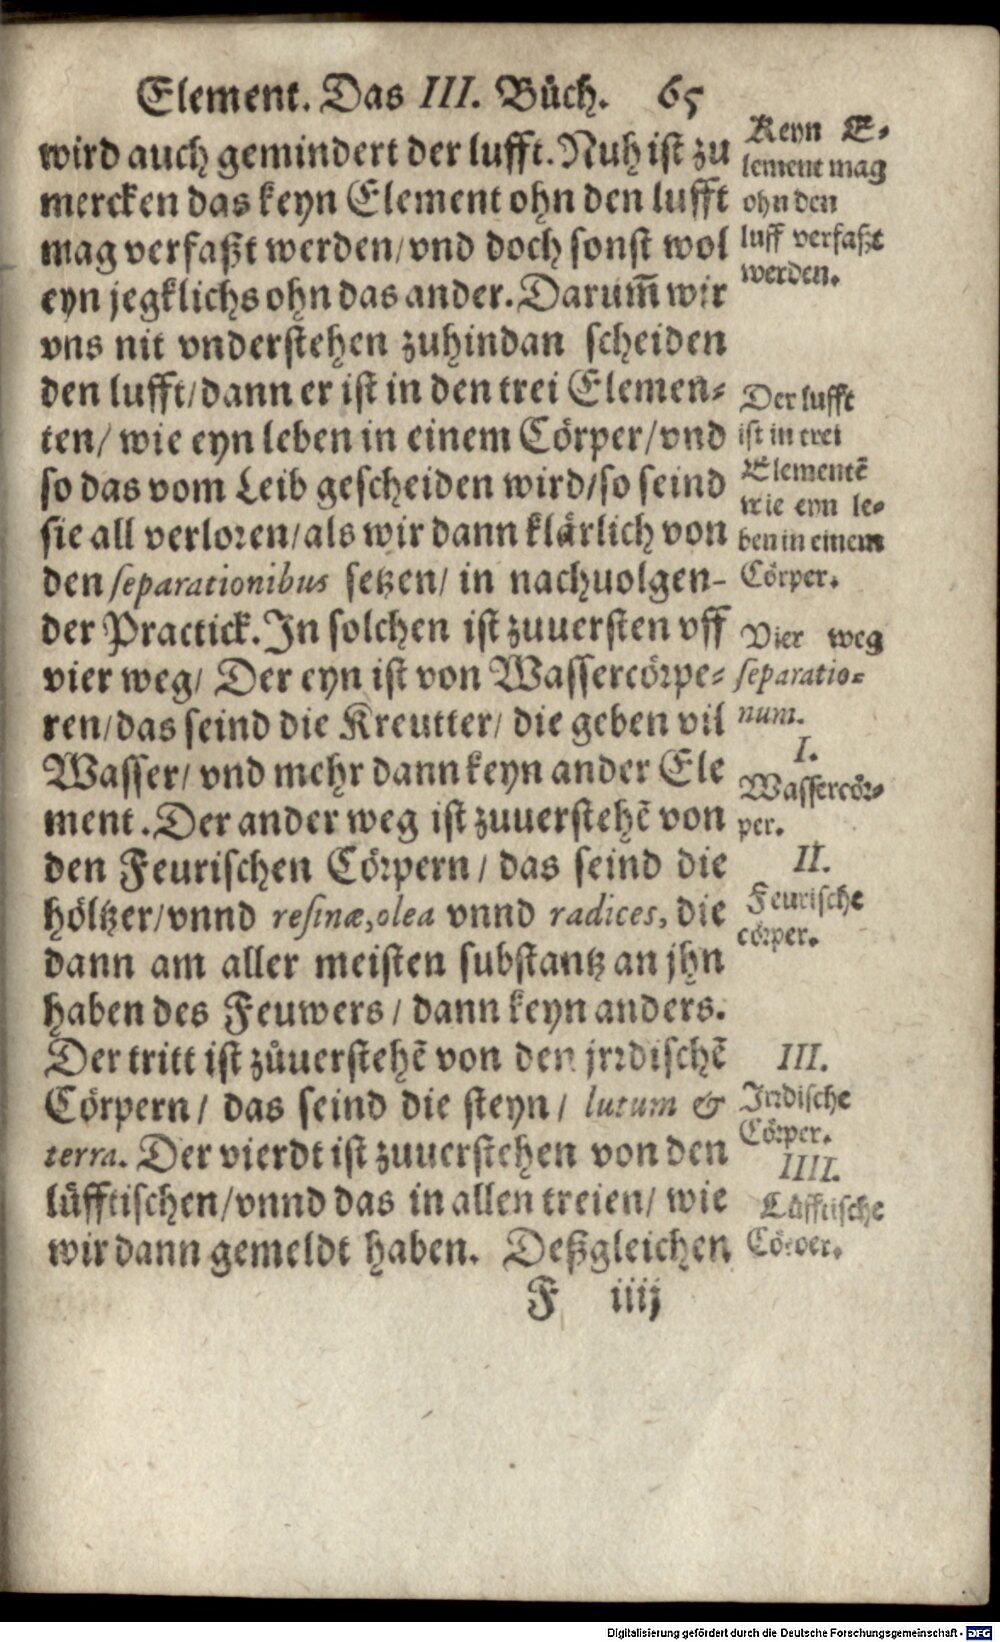 Element. Das III. Bůch. 65
wird auch gemindert der lufft. Nuh ist zu
mercken das keyn Element ohn den lufft
mag verfaßt werden/ vnd doch sonst wol
eyn jegklichs ohn das ander. Darum̃ wir
vns nit vnderstehen zuhindan scheiden
den lufft/ dann er ist in den trei Elemen⸗
ten/ wie eyn leben in einem Cörper/ vnd
so das vom Leib gescheiden wird/ so seind
sie all verloren/ als wir dann klärlich von
den separationibus setzen/ in nachuolgen-
der Practick. In solchen ist zuuersten vff
vier weg/ Der eyn ist von Wassercörpe⸗
ren/ das seind die Kreutter/ die geben vil
Wasser/ vnd mehr dann keyn ander Ele
ment. Der ander weg ist zuuerstehẽ von
den Feurischen Cörpern/ das seind die
höltzer/ vnnd resinæ, olea vnnd radices, die
dann am aller meisten substantz an jhn
haben des Feuwers/ dann keyn anders.
Der tritt ist zůuerstehẽ von den jrrdischẽ
Cörpern/ das seind die steyn/ lutum &
terra. Der vierdt ist zuuerstehen von den
lüfftischen/ vnnd das in allen treien/ wie
wir dann gemeldt haben. Deßgleichen
F iiij
Keyn E⸗
lement mag
ohn den
luff verfaßt
werden.
Der lufft
ist in trei
Elementẽ
wie eyn le⸗
ben in einem
Cörper.
Vier weg
separatio⸗
num.
I.
Wassercör⸗
per.
II.
Feurische
cörper.
III.
Jrrdische
Cörper.
IIII.
Lüfftische
Cörper.
Digitalisierung gefördert durch die Deutsche Forschungsgemeinschaft - DFG